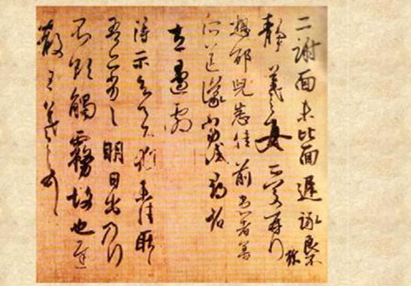 二謝面未比面遲詠良不
靜羲之女愛再拜
想邵兒悉佳前患者善
左邊劇
得示知足下猶未佳耿耿
吾亦劣劣明日出乃行
不欲觸霧故也遲
散王羲之頓首